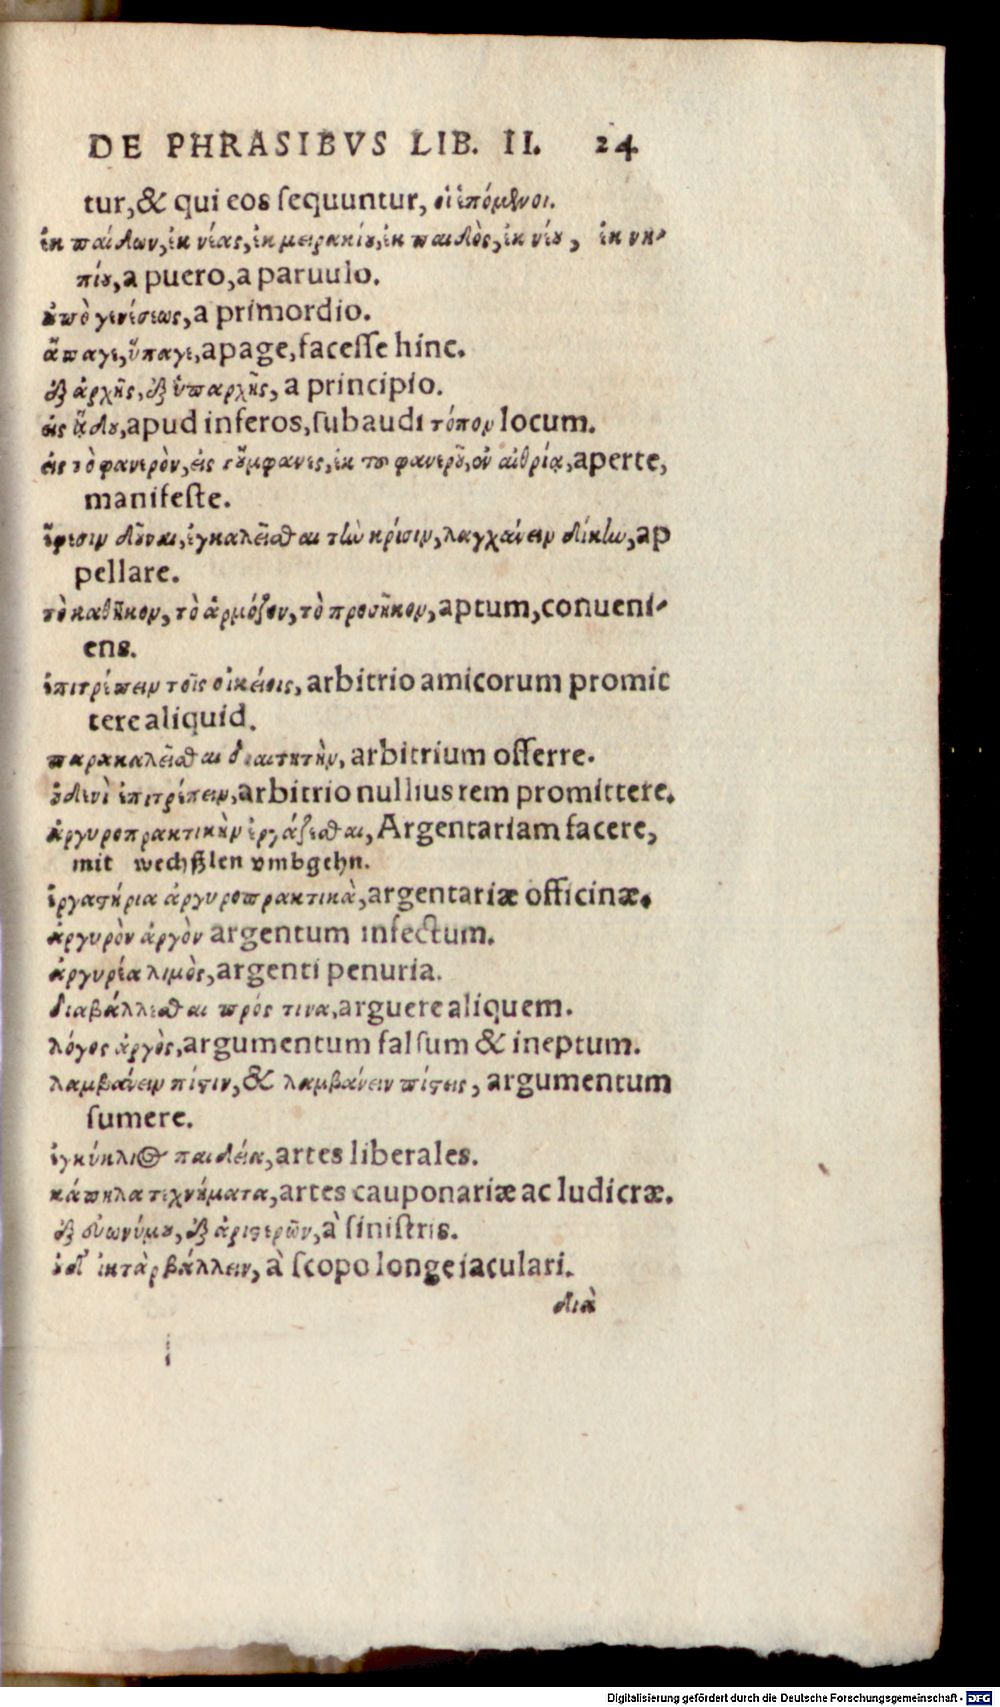 DE PHRASIBVS LIB. II. 24
tur, & qui eos sequuntur, οἱ ἑπόμενοι.
ἐκ παίδων, ἐκ νέας, ἐκ μειρακίου, ἐκ παιδὸς, ἐκ νέου, ἐκ νη-
πίου, a puero, a paruulo.
ἀπὸ γενέσεως, a primordio.
ἄπαγε, ὕπαγε, apage, facesse hinc.
ἐξ ἀρχῆς, ἐξ ὑπαρχῆς, a principio.
εἰς ᾅδου, apud inferos, subaudi τόπον locum.
εἰς τὸ φανερὸν, εἰς τοὔμφανες, ἐκ τοῦ φανεροῦ, ἐν αἰθρίᾳ, aperte,
manifeste.
ἔφεσιν δοῦναι, ἐγκαλεῖσθαι τὴν κρίσιν, λαγχάνειν δίκην, ap
pellare.
τὸ καθῆκον, τὸ ἁρμόζον, τὸ προσῆκον, aptum, conueni-
ens.
ἐπιτρέπειν τοῖς οἰκείοις, arbitrio amicorum promit
tere aliquid.
παρακαλεῖσθαι διαιτητὴν, arbitrium offerre.
οὐδενὶ ἐπιτρέπειν, arbitrio nullius rem promittere.
ἀργυροπρακτικὴν ἐργάζεσθαι, Argentariam facere,
mit wechßlen vmbgehn.
ἐργαστήρια ἀργυροπρακτικὰ, argentariæ officinæ.
ἀργυρὸν ἀργὸν argentum infectum.
ἀργυρία λιμὸς, argenti penuria.
διαβάλλεσθαι πρός τινα, arguere aliquem.
λόγος ἀργὸς, argumentum falsum & ineptum.
λαμβάνειν πίστιν, & λαμβάνειν πίστεις, argumentum
sumere.
ἐγκύκλιος παιδεία, artes liberales.
κάπηλα τεχνήματα, artes cauponariæ ac ludicræ.
ἐξ εὐωνύμου, ἐξ ἀριστερῶν, à sinistris.
οὐδ' ἰκτὰρ βάλλειν, à scopo longe iaculari.
διὰ
Digitalisierung gefördert durch die Deutsche Forschungsgemeinschaft - DFG